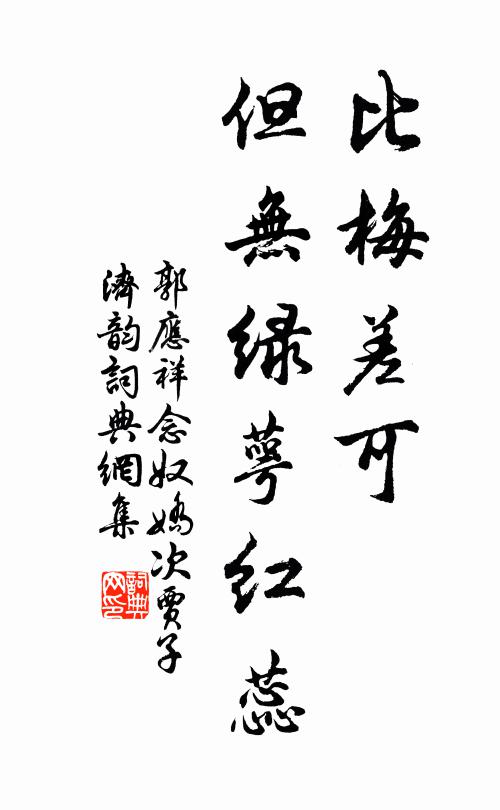 比梅差可
但無緑萼红蕊
郭應祥念奴嬌次賈子
濟韵詞典網集
詞典
网印